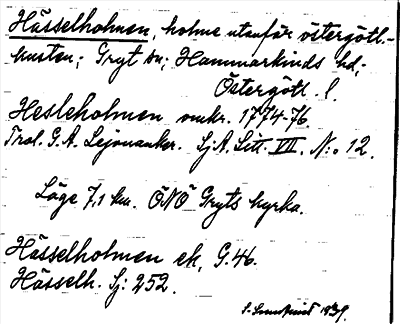 Hässelholmen, holme utanför östergötl.-
kusten; Gryt sn; Hammarkinds hd;
Östergötl. l.
Hesleholmen omkr. 1774-76
Trol. G. A. Lejonanker. SjA. Litt. VII. No: 12.
Läge 7.1 km. ÖNÖ Gryts kyrka.
Hässelholmen ek, G. 46.
Hässelh. Sj: 252.